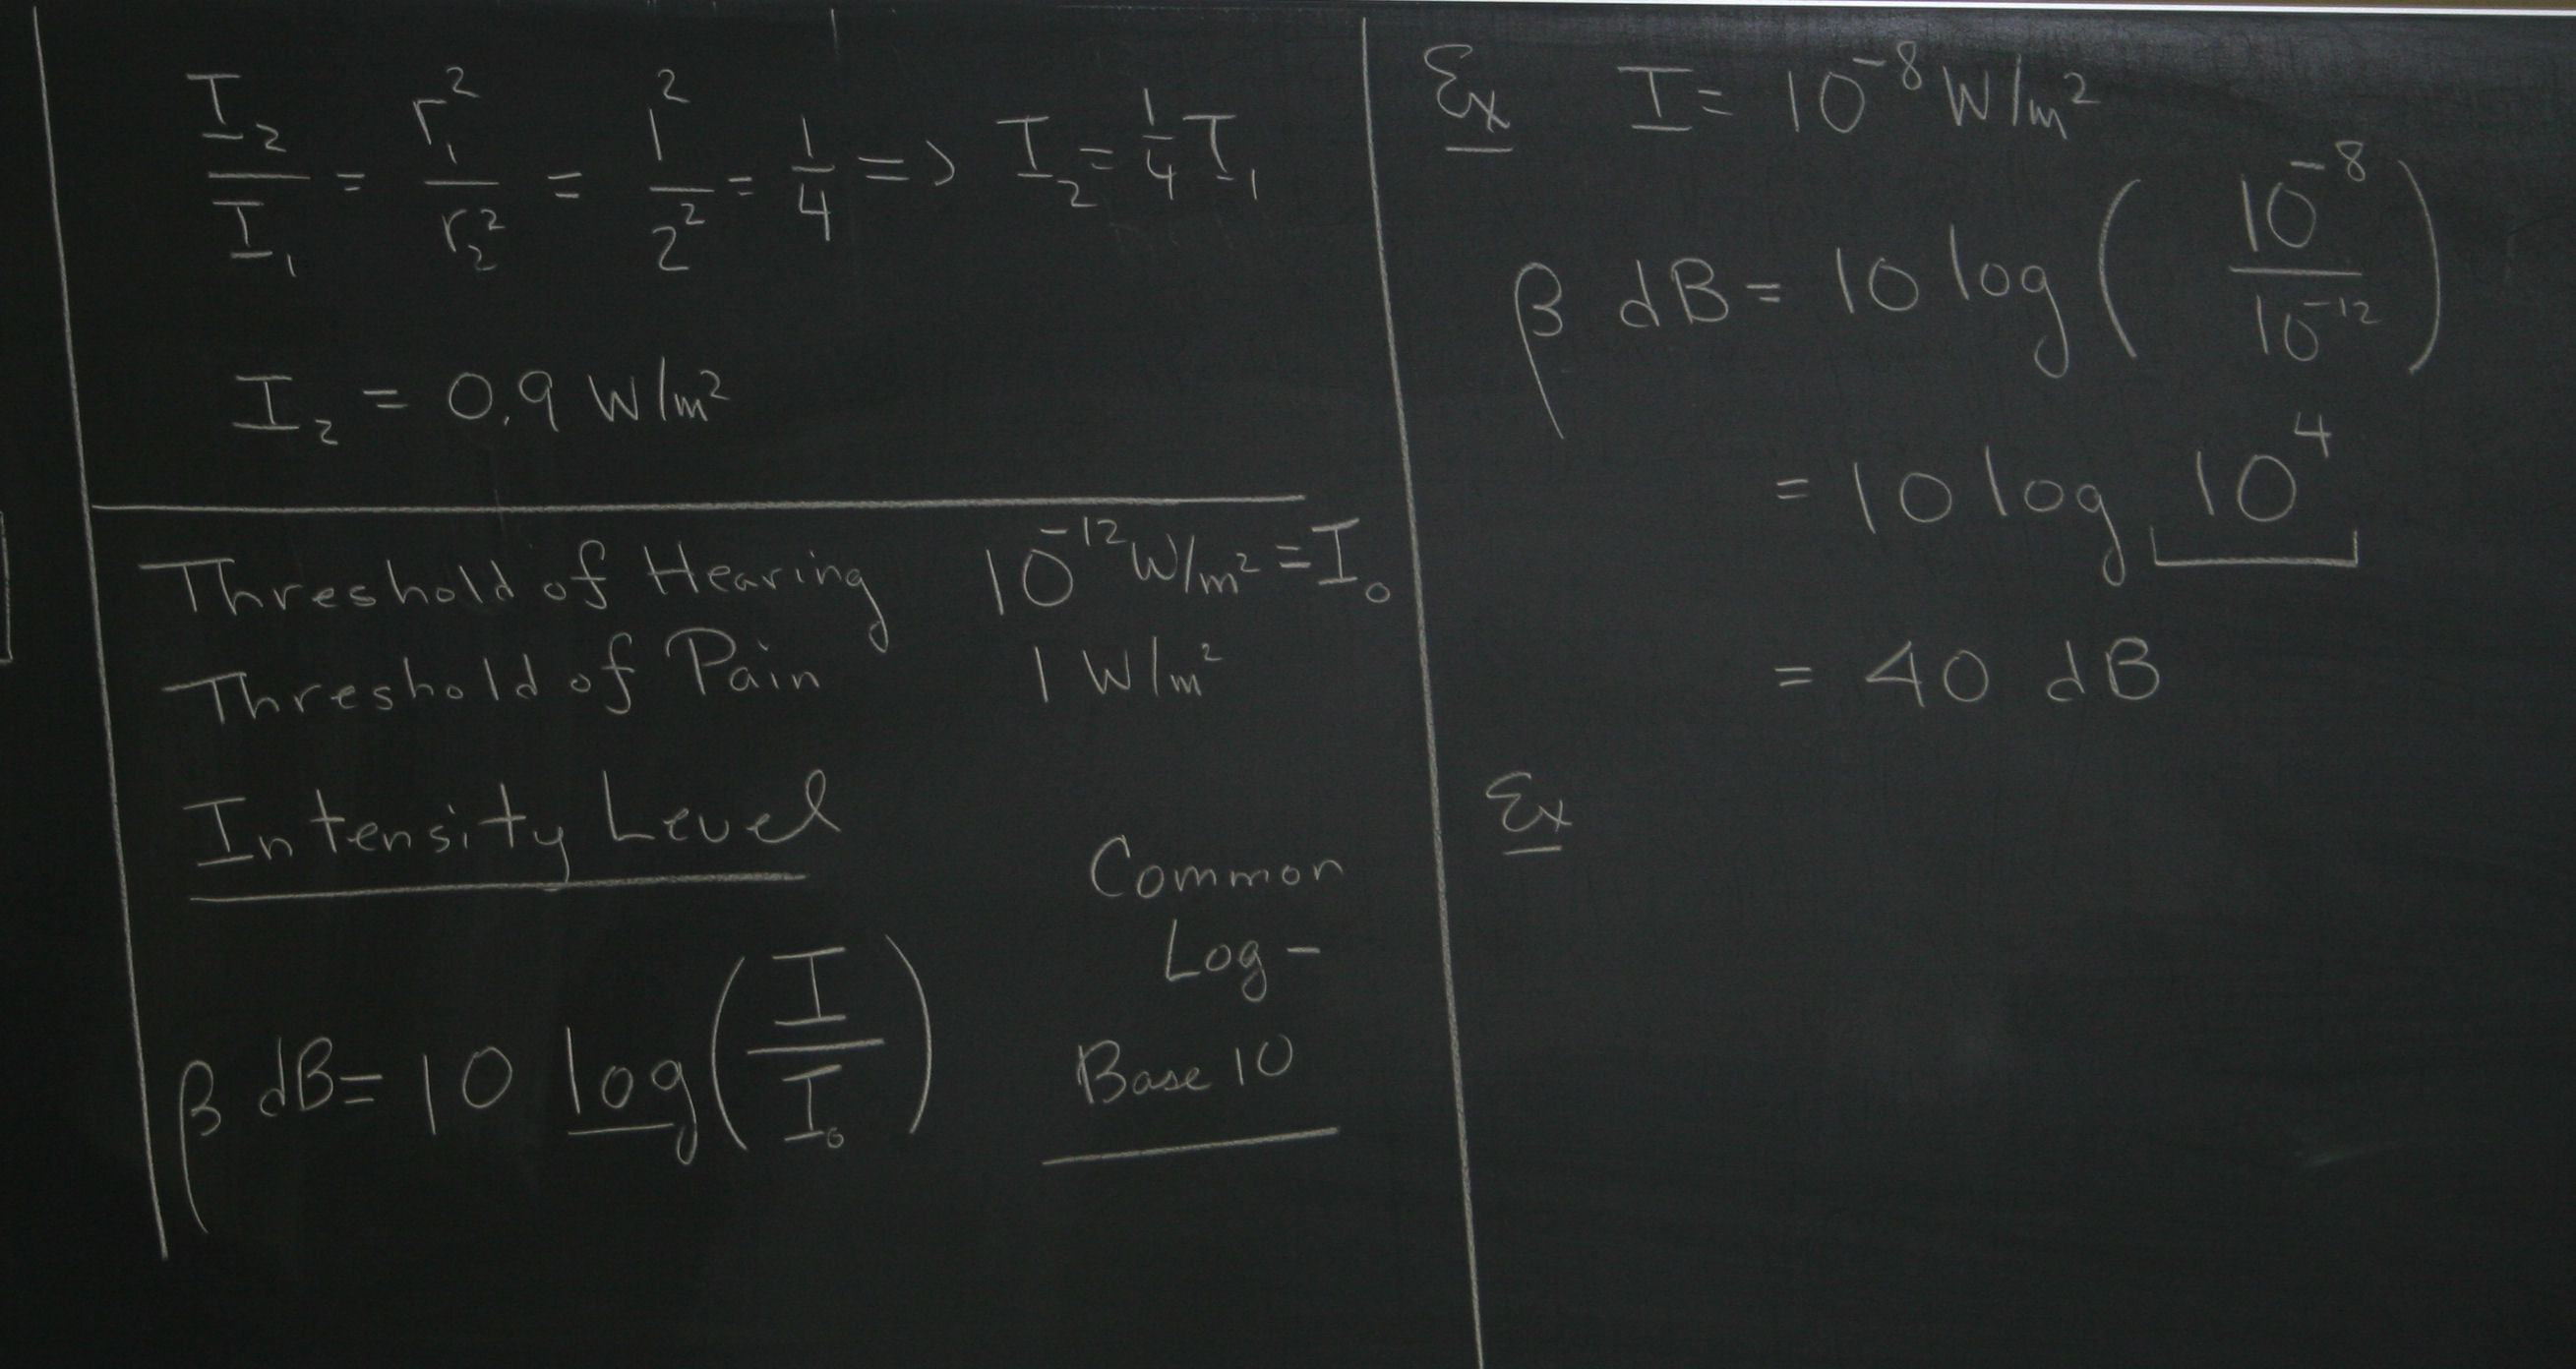 I₂/I₁ = r₁²/r₂² = 1²/2² = 1/4 => I₂ = 1/4 I₁
I₂ = 0.9 W/m²
Threshold of Hearing 10⁻¹² W/m² = I₀
Threshold of Pain 1 W/m²
Intensity Level
β dB = 10 log(I/I₀)
Common
Log -
Base 10
Ex I = 10⁻⁸ W/m²
β dB = 10 log(10⁻⁸/10⁻¹²)
= 10 log 10⁴
= 40 dB
Ex